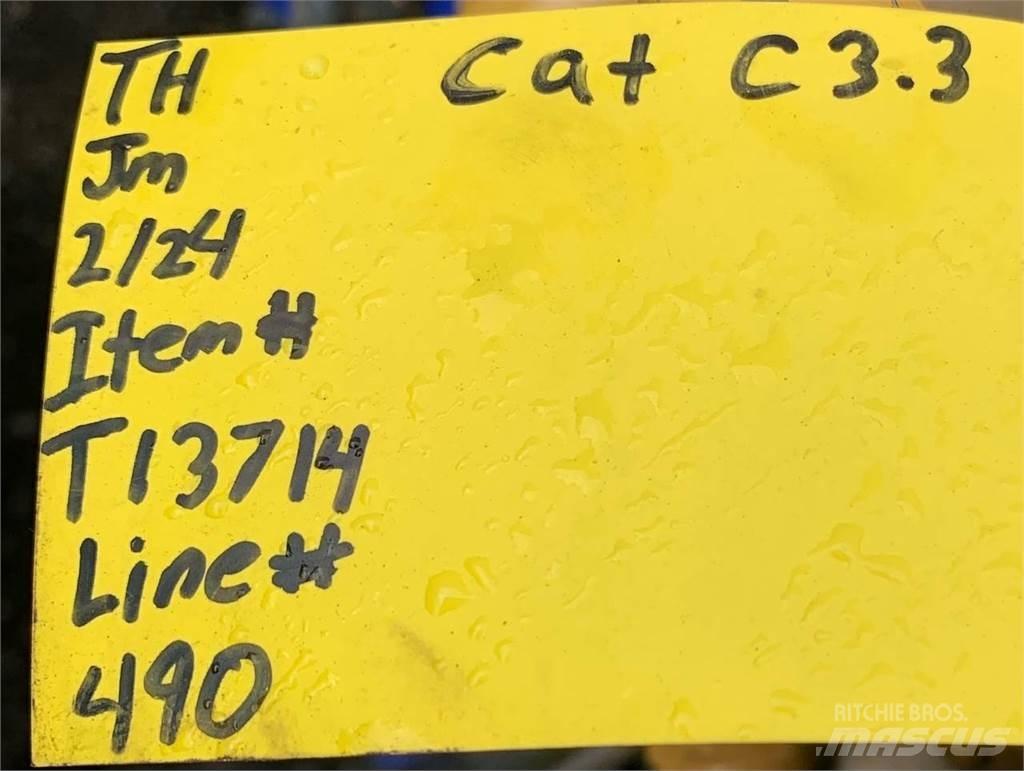 TH
Cat C3.3
Jm
2/24
Item #
T13714
Line #
490
RITCHIE BROS.
MASCUS